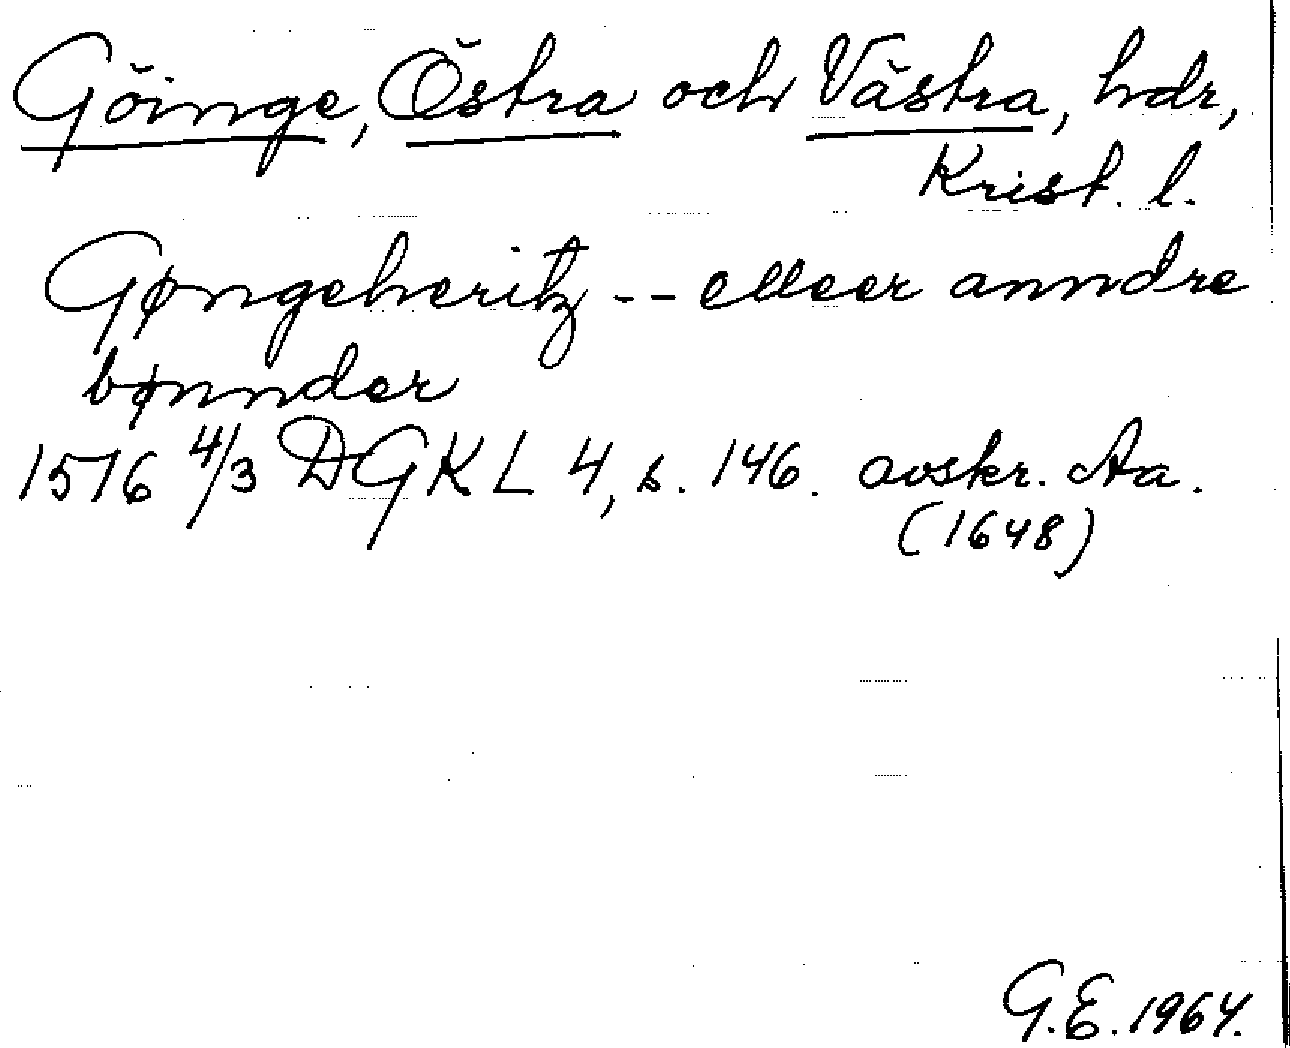 Göinge, Östra och Västra, hdr,
Krist. l.
Gøngeheritz -- elleer anndre
bønnder
1576 4/3 DGKL 4, s. 146. avskr. Aa.
(1648)
G.E. 1964.